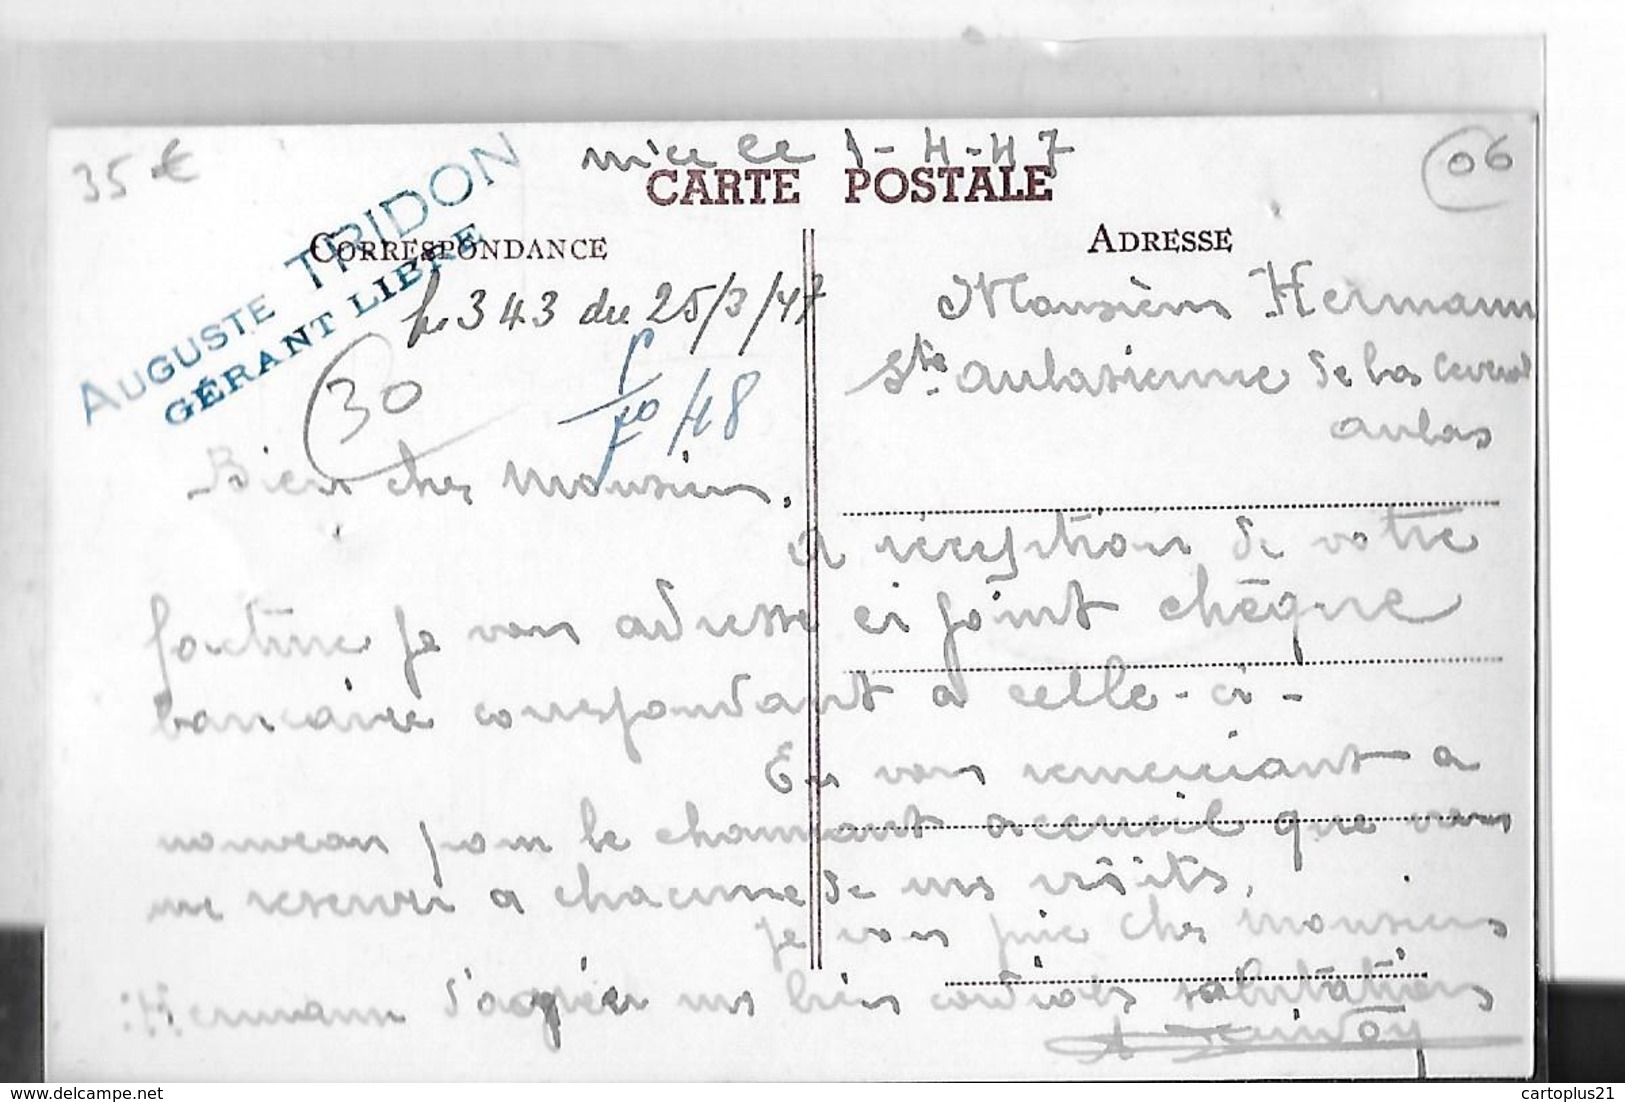 35 €
Nice le 1-4-47
06
CARTE POSTALE
AUGUSTE TRIDON
GÉRANT LIBRE
CORRESPONDANCE
ADRESSE
343 du 25/3/47
30
10/48
Monsieur Hermann
Sté aulasienne de bas
aulas
Bien cher Monsieur,
A réception de votre
facture je vous adresse ci joint chèque
bancaire correspondant a celle-ci-
En vous remerciant a
nouveau pour le charmant accueil que vous
me reservez a chacune de mes visites,
Je vous prie cher Monsieur
Hermann d'agréer mes bien cordiales salutations
A Tridon
cartoplus21